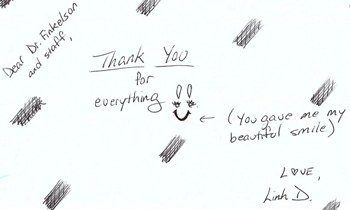 Dear Dr. Finkelson
and staff,
Thank You
for
everything
(You gave me my
beautiful smile)
LOVE,
Linh D.